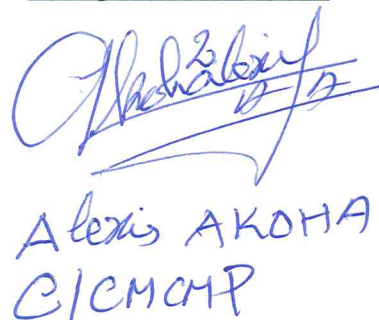 Alexis AKOHA
C/CMCMP